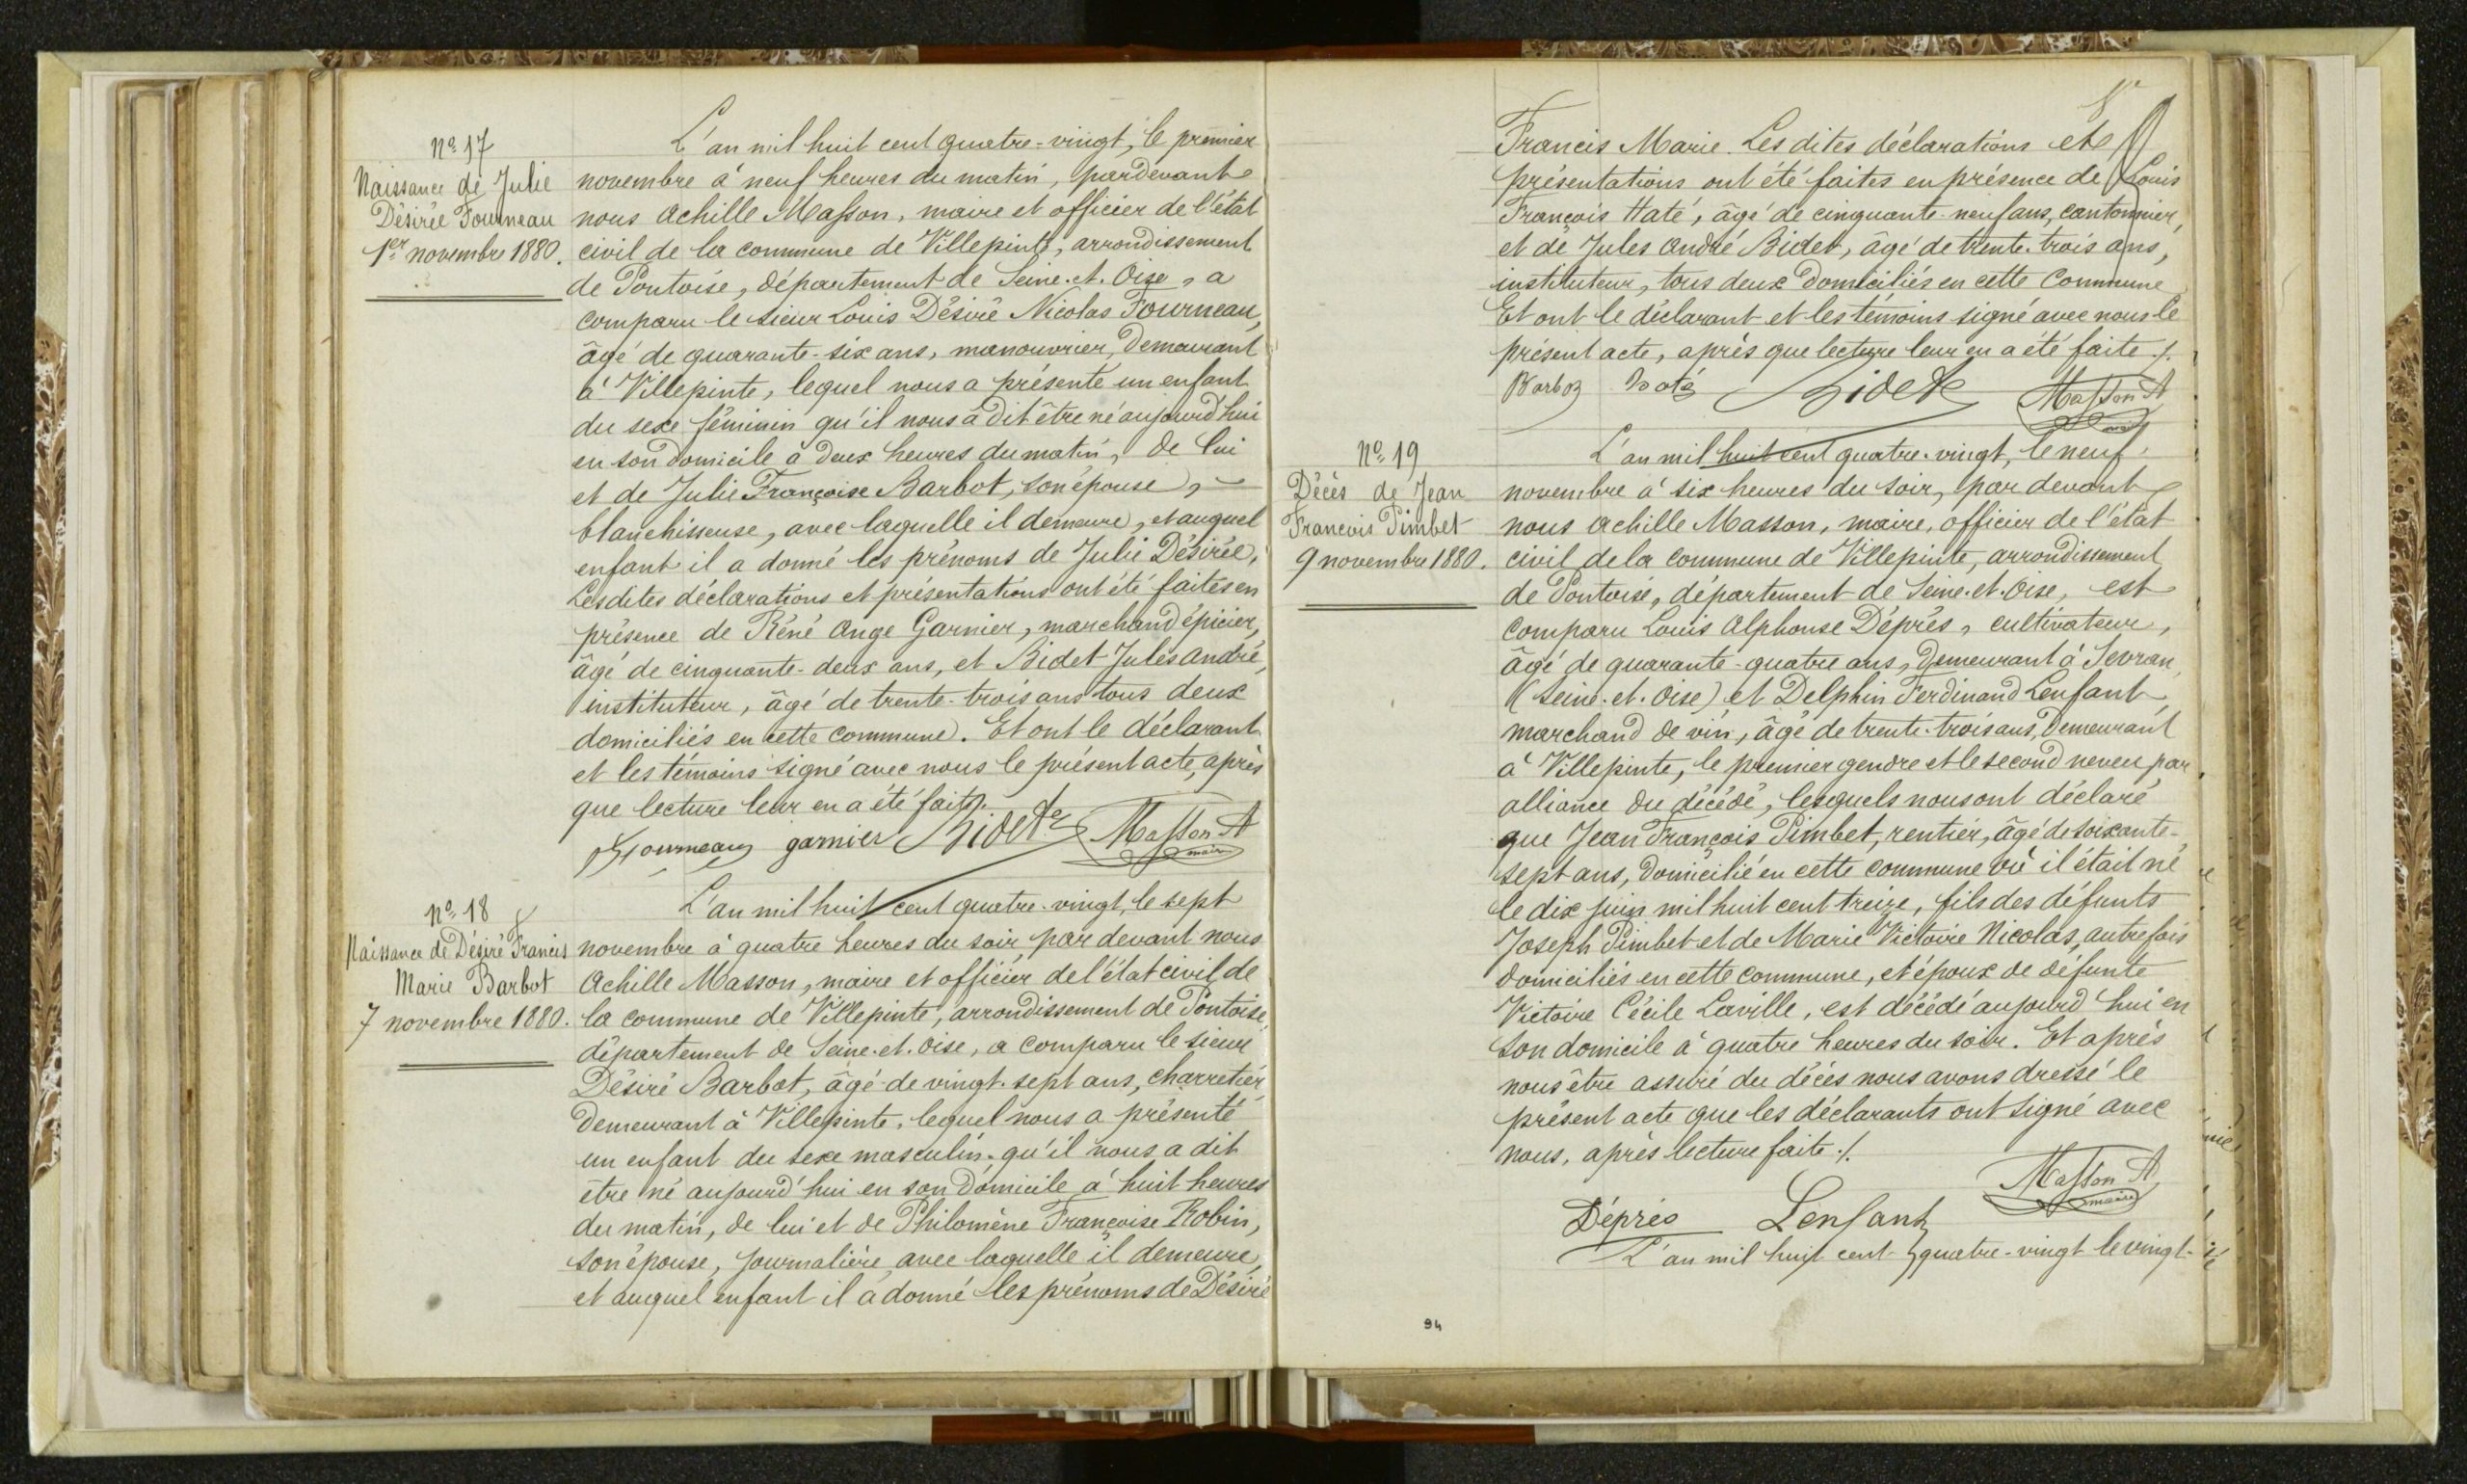 Nº 17
Naissance de Julie
Désirée Fourneau
1er novembre 1880.
L'an mil huit cent quatre-vingt, le premier
novembre à neuf heures du matin, pardevant
nous Achille Masson, maire et officier de l'état
civil de la commune de Villepinte, arrondissement
de Pontoise, département de Seine-et-Oise, a
comparu le sieur Louis Désiré Nicolas Fourneau,
âgé de quarante-six ans, manouvrier, demeurant
à Villepinte, lequel nous a présenté un enfant
du sexe féminin qu'il nous a dit être né aujourd'hui
en son domicile à deux heures du matin, de lui
et de Julie Françoise Barbot, son épouse,
blanchisseuse, avec laquelle il demeure, et auquel
enfant il a donné les prénoms de Julie Désirée,
Lesdites déclarations et présentations ont été faites en
présence de Réné Ange Garnier, marchand épicier,
âgé de cinquante-deux ans, et Bidet Jules André,
instituteur, âgé de trente-trois ans tous deux
domiciliés en cette commune. Et ont le déclarant
et les témoins signé avec nous le présent acte, après
que lecture leur en a été faite.
Fourneau garnier Bidet Masson A
maire
Nº 18
Naissance de Désiré Francis
Marie Barbot
7 novembre 1880.
L'an mil huit cent quatre-vingt, le sept
novembre à quatre heures du soir, par devant nous
Achille Masson, maire et officier de l'état civil de
la commune de Villepinte, arrondissement de Pontoise,
département de Seine-et-Oise, a comparu le sieur
Désiré Barbot, âgé de vingt-sept ans, charretier,
demeurant à Villepinte, lequel nous a présenté
un enfant du sexe masculin qu'il nous a dit
être né aujourd'hui en son domicile à huit heures
du matin, de lui et de Philomène Françoise Robin,
son épouse, journalière, avec laquelle il demeure,
et auquel enfant il a donné les prénoms de Désiré
Francis Marie. Les dites déclarations et
présentations ont été faites en présence de Louis
François Haté, âgé de cinquante-neuf ans, cantonnier,
et de Jules André Bidet, âgé de trente-trois ans,
instituteur, tous deux domiciliés en cette Commune
Et ont le déclarant et les témoins signé avec nous le
présent acte, après que lecture leur en a été faite ./.
Barbot haté Bidet Masson A
Nº 19
Décès de Jean
Francois Pimbet
9 novembre 1880.
L'an mil huit cent quatre-vingt, le neuf
novembre à six heures du soir, par devant
nous Achille Masson, maire, officier de l'état
civil de la commune de Villepinte, arrondissement
de Pontoise, département de Seine-et-Oise, est
comparu Louis Alphonse Déprés, cultivateur,
âgé de quarante-quatre ans, demeurant à Sevran
(Seine-et-Oise) et Delphin Ferdinand Lenfant,
marchand de vin, âgé de trente-trois ans, demeurant
à Villepinte, le premier gendre et le second neveu par
alliance du décédé, lesquels nous ont déclaré
que Jean François Pimbet, rentier, âgé de soixante-
sept ans, domicilié en cette commune où il était né
le dix juin mil huit cent treize, fils des défunts
Joseph Pimbet et de Marie Victoire Nicolas, autrefois
domiciliés en cette commune, et époux de défunte
Victoire Cécile Laville, est décédé aujourd'hui en
son domicile à quatre heures du soir. Et après
nous être assuré du décès nous avons dressé le
présent acte que les déclarants ont signé avec
nous, après lecture faite ./.
Masson A
maire
Déprés Lenfant
L'an mil huit cent quatre-vingt le vingt-
94